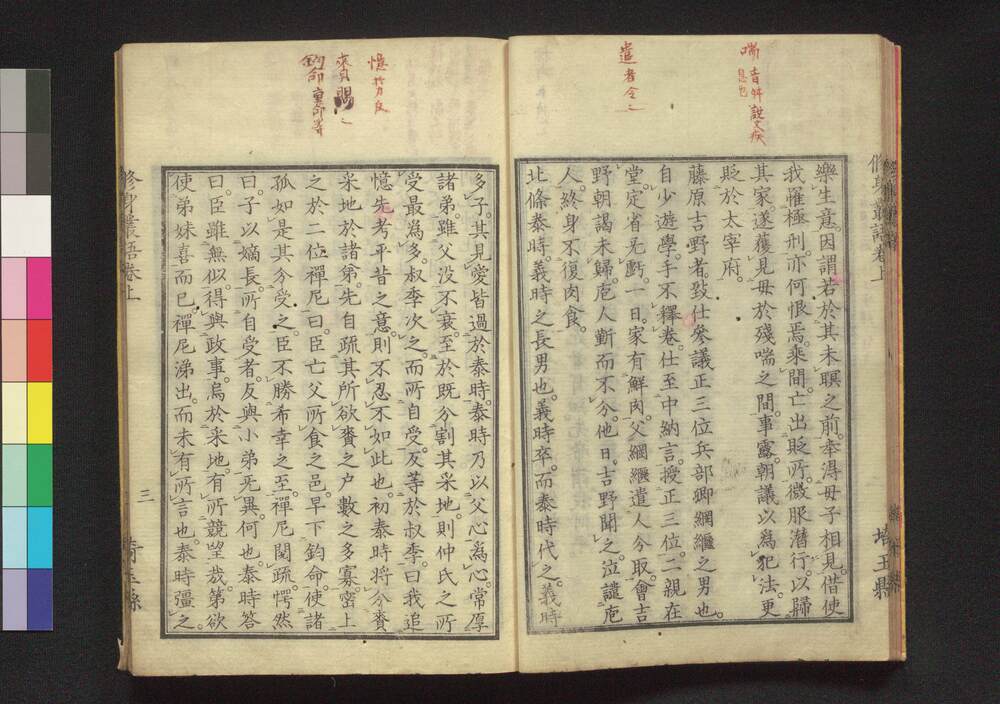 喘音舛説文疾
息也
遣者令之
樂生意。因謂。若於其未瞑之前。幸得母子相見。借使
我罹極刑。亦何恨焉。乘間。亡出貶所。微服潛行。以歸
其家。遂獲見母於殘喘之間。事露。朝議以爲犯法。更
貶於太宰府。
藤原吉野者。致仕參議正三位兵部卿綱繼之男也。
自少遊學。手不釋卷。仕至中納言。授正三位。二親在
堂。定省无虧。一日。家有鮮肉。父綱繼遣人分取。會吉
野朝謁未歸。庖人靳而不分。他日。吉野聞之。泣讓庖
人。終身不復肉食。
北條泰時。義時之長男也。義時卒。而泰時代之。義時
憶
來貝賜之
鈞命重命等
多子。其見愛皆過於泰時。泰時乃以父心爲心。常厚
諸弟。雖父没不衰。至於既分割其采地。則仲氏之所
受最爲多。叔季次之。而所自受。反等於叔季。曰我追
憶先考平昔之意。則不忍不如此也。初泰時將分賚
采地於諸弟。先自疏其所欲賚之户數之多寡。密上
之於二位禪尼曰。臣亡父所食之邑。早下鈞命。使諸
孤如是其分受之。臣不勝希幸之至。禪尼閲疏。愕然
曰。子以嫡長。所自受者。反與小弟无異。何也。泰時答
曰。臣雖無似。得與政事。烏於采地。有所競望哉。第欲
使弟妹喜而已。禪尼涕出。而未有所言也。泰時彊之。
修身叢語卷上
三